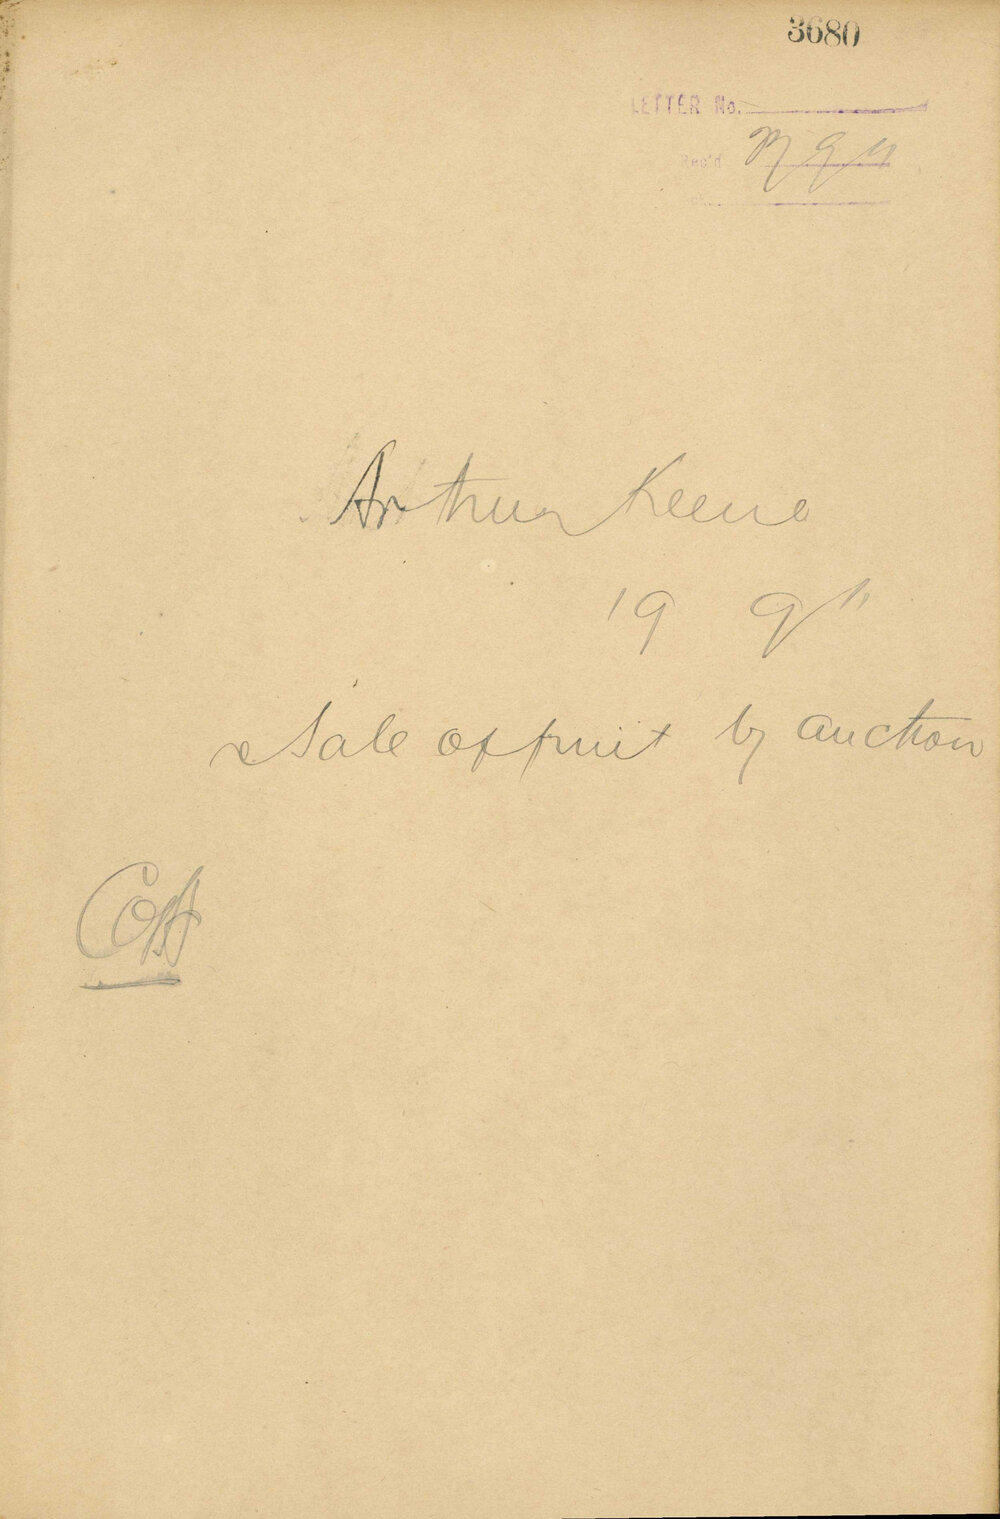 3680
LETTER No.
Rec'd
Arthur Keene
19 9 11
Sale of fruit by auction